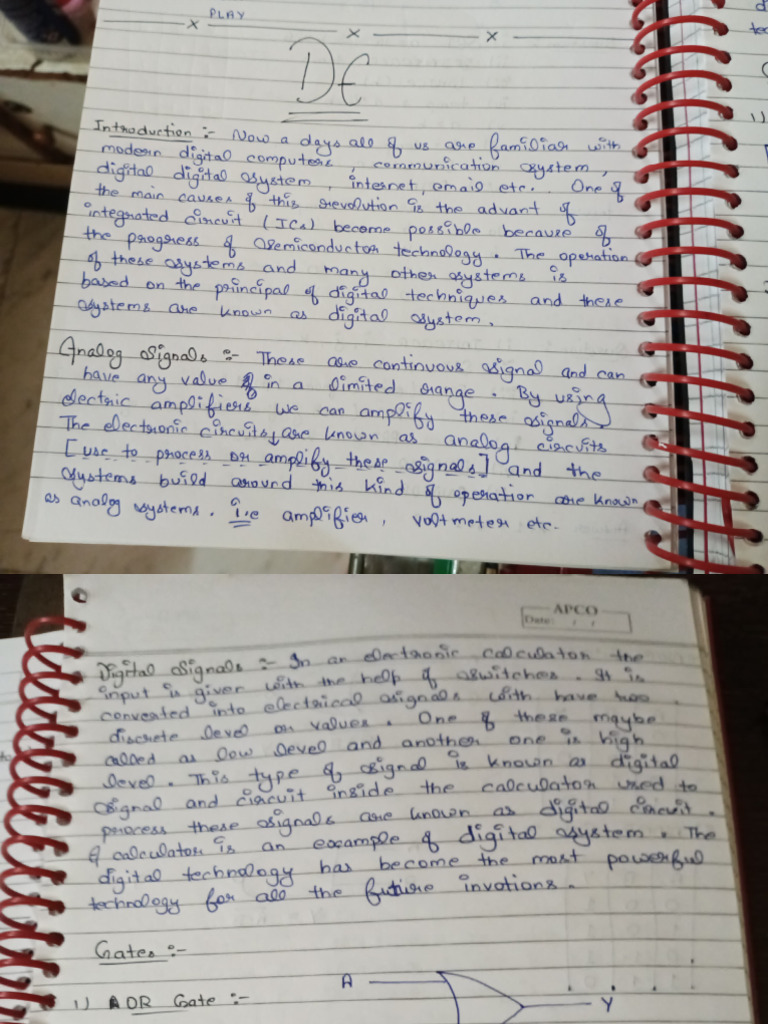 PLAY
x x x
DE
Introduction :- Now a days all of us are familiar with
modern digital computers, communication system,
digital digital system, internet, email etc. One of
the main causes of this revolution is the advant of
integrated circuit (ICs) become possible because of
the progress of semiconductor technology. The operation
of these systems and many other systems is
based on the principal of digital techniques and these
systems are known as digital system.
Analog Signals :- These are continuous signal and can
have any value in a limited range. By using
electric amplifiers we can amplify these signals
The electronic circuits are known as analog circuits
[use to process or amplify these signals] and the
systems build around this kind of operation are known
as analog systems. i.e amplifier, voltmeter etc.
APCO
Date: / /
Digital Signals :- In an electronic calculator the
input is given with the help of switches. It is
converted into electrical signals with have two
discrete level or values. One of these maybe
called as low level and another one is high
level. This type of signal is known as digital
signal and circuit inside the calculator used to
process these signals are known as digital circuit.
calculator is an example of digital system. The
digital technology has become the most powerful
technology for all the future invotions.
Gates :-
1) OR Gate :- A
Y